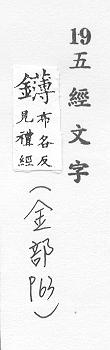 19 五經文字
鑮
布各反
見禮經
(金部 P63)